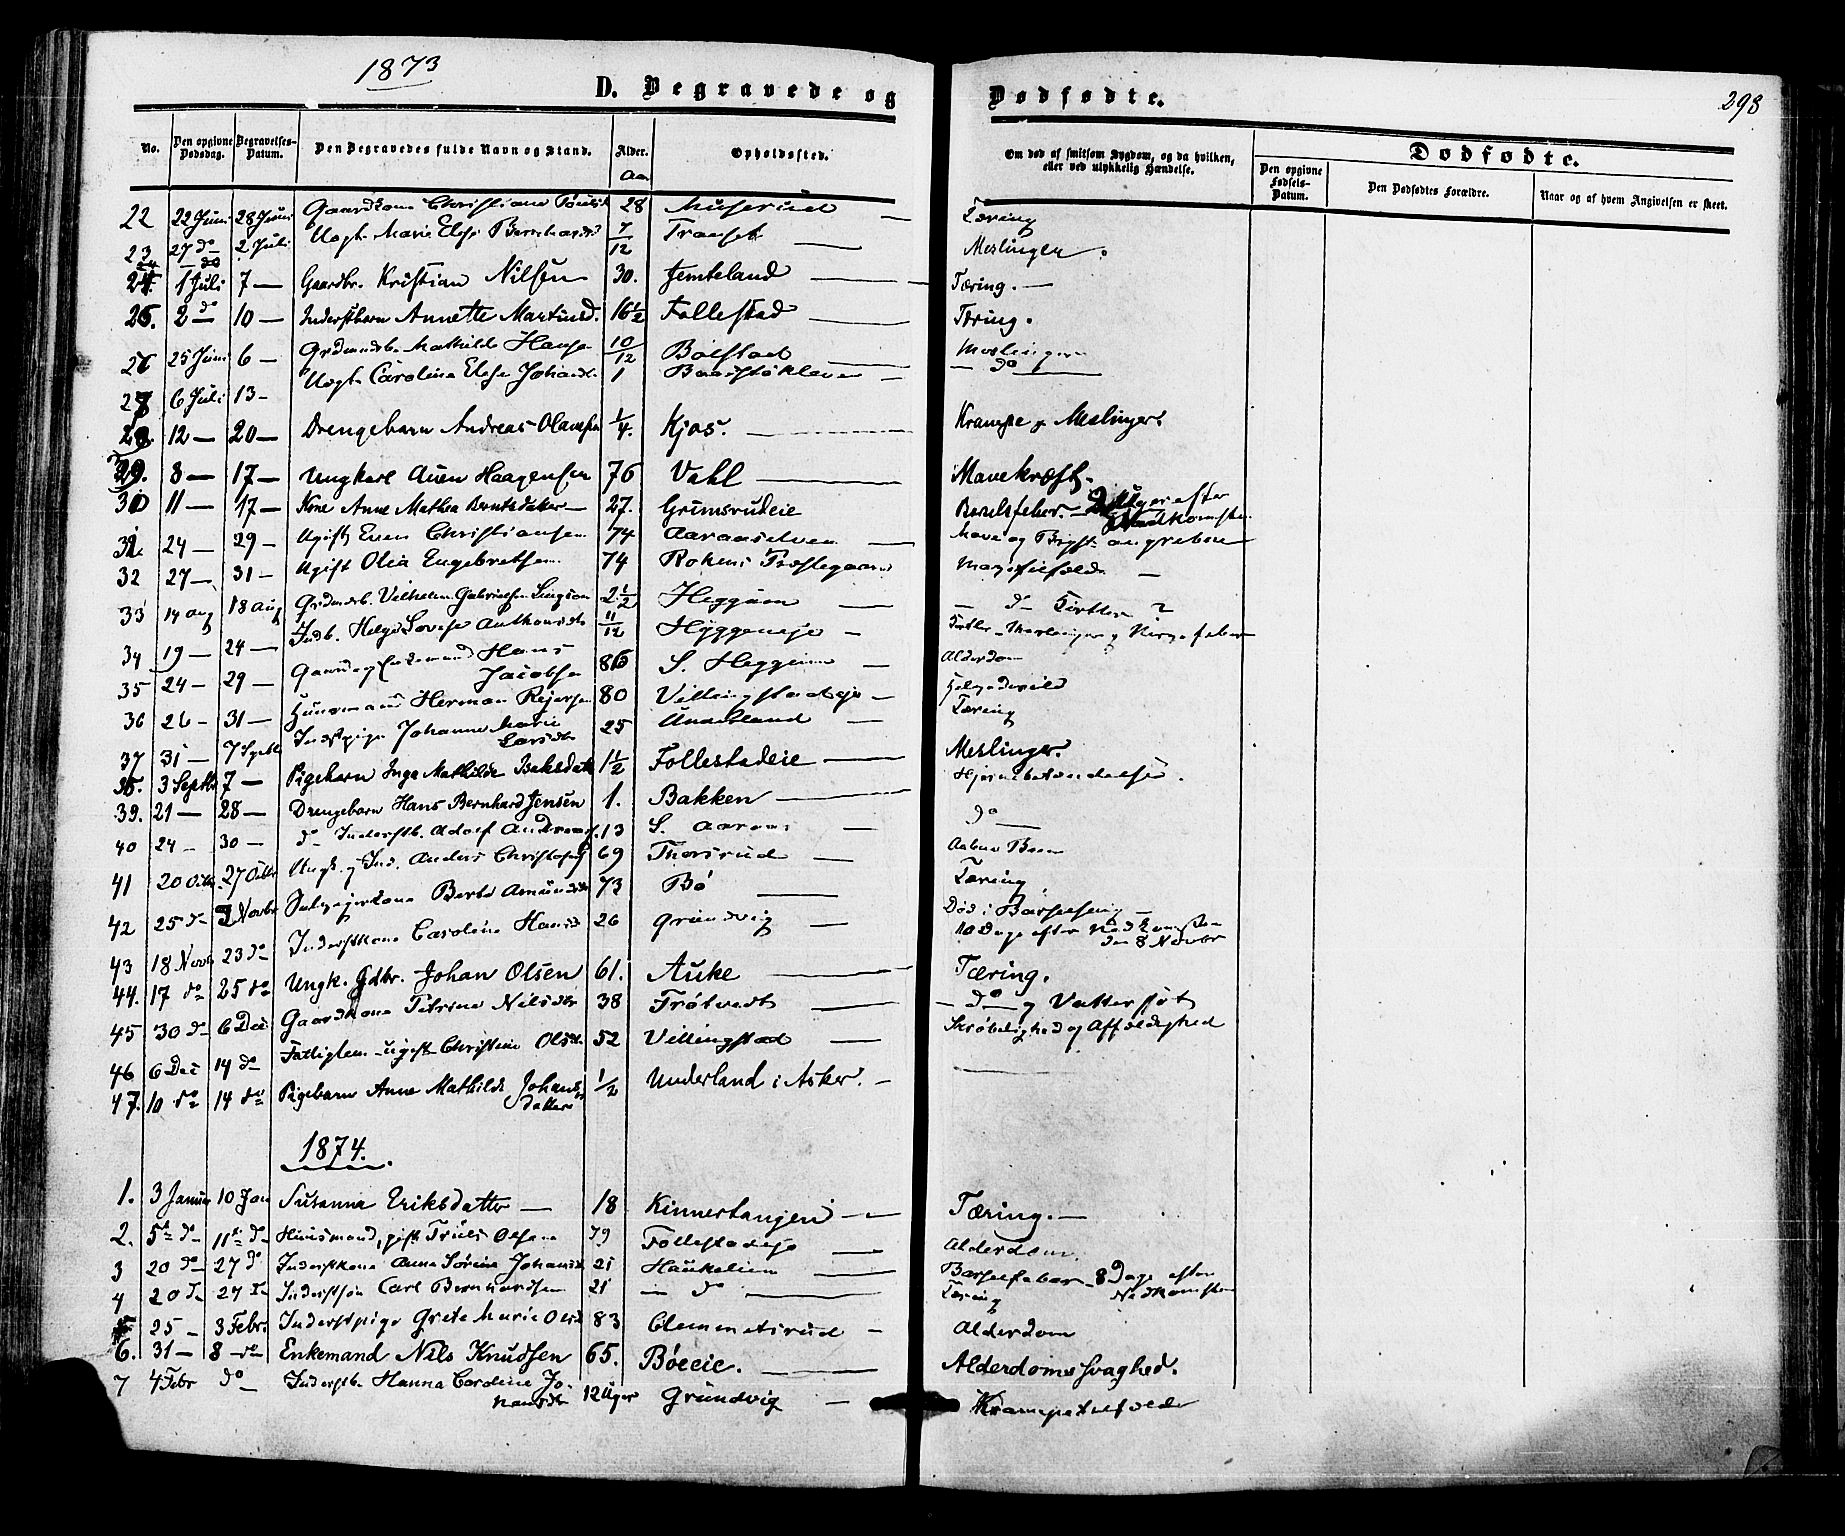 1873
D. Begravede og Dødfødte.
298
No. | Den opgivne Dødsdag. | Begravelses-Datum. | Den Begravedes fulde Navn og Stand. | Alder. | Opholdssted. | Om død af smitsom Sygdom, og da hvilken, eller ved ulykkelig Hændelse. | Dødfødte. | Den opgivne Fødsels-Datum. | Den Dødfødtes Forældre. | Naar og af hvem Angivelsen er skeet.
Aar
22 | 22 Juni | 28 Juni | Gaardkone Christiane | 28 | Tæring
23 | 27 do | 2 Juli | Uægt. Marie Elise Bernhardsd | 7/12 | Transet | Meslinger.
24 | 1 Juli | 7 — | Gaardbr. Kristian Nilsen | 30. | Jemteland — | Tæring. —
25. | 2 do | 10 — | Inderstbarn Annette Martinsd. | 16 1/2 | Follestad — | Tæring.
26 | 25 Juni | 6 — | Grdmandsb. Mathilde Hansd | 10/12 | Bølstad | Meslinger
27 | 6 Juli | 13 — | Uægt. Caroline Elise Johansd. | 1 | — do —
28. | 12 — | 20 — | Drengebarn Andreas Olavsen | 1/4. | Kjos. — | Krampe og Meslinger
29. | 8 — | 17 — | Ungkarl Auen Haagensen | 76 | Vahl — | Mavekræft.
30 | 11 — | 17 — | Kone Anne Mathea Berntsdatter — | 27. | Grimsrudeie | Barselfeber. — 2 Uger efter Nedkomsten
31. | 24 — | 29 — | Ugift Even Christiansen | 74 | Aaraaselven — | Mave og Bryst angreben
32 | 27 — | 31 — | Ugift Olia Engebretsen | 74 | Rokens Præstegaard
33 | 14 Aug | 18 Aug | Grdmandsb. Vilhelm Gabrielsen | 2 1/2 | Heggum — | — do —
34 | 19 — | 24 — | Indb. Helga Lovise Anthonsdtr | 11/12 | Hyggeneie —
35 | 24 — | 29 — | Hans Jacobsen | 86 | S. Heggum — | Alderdom
36 | 26 — | 31 — | Huusmand Herman Rejersen | 80 | Villingstadeje —
37 | 31 — | 7 Septbr | Indstpige Johanne Marie Larsdtr | 25 | Underland — | Tæring
38. | 3 Septbr | 7 — | Pigebarn Inga Mathilde | 1 1/2 | Follestadeie — | Meslinger.
39. | 21 — | 28 — | Drengebarn Hans Bernhard Jensen | 1. | Bakken — | Hjernebetændelse.
40 | 24 — | 30 — | do Inderstb. Adolf Andreas. | 13 | S. Aaraas — | do —
41 | 20 Octbr. | 27 Octbr | Ungk. og Ind. Anders Christofers | 69 | Thorsrud — | Aabne Been
42 | 25 do | 2 Novbr | Berte Amundsdtr | 73 | Bø — | Tæring
43 | 18 Novbr | 23 do | Inderstkone Caroline Hansd | 26 | Grundvig — | Død i Barselseng — 10 Dage efter Nedkomsten den 8 Novbr
44. | 17 do | 25 do | Ungk. Gdbr. Johan Olsen | 61. | Auke — | Tæring.
45 | 30 do | 6 Dec | Gaardkone Petrine Nilsdtr | 38 | Frøtvedt — | — do — og Vattersot
46 | 6 Dec | 14 do | Fattiglem ugift Christine Olsdtr | 52 | Villingstad — | Skrøbelighed og Affældighed
47. | 10 do | 14 do | Pigebarn Anne Mathilde Johans datter | 1/2 | Underland i Asker. — | —
1874.
1. | 3 Januar | 10 Jan | Susanna Eriksdatter — | 18 | Kinnertangen — | Tæring. —
2. | 5te do | 11te do | Huusmand, gift Truls Olsen | 79 | Follestadeje — | Alderdom
3 | 20 do | 27 do | Inderstkone Anne Sørine Johansd | 21 | Haukelien — | Barselfeber — 8 Dage efter Nedkomsten
4 | 20 do | 27 do | Inderstsøn Carl Bernhardsen | 21 | — do — | Tæring
5 | 25 — | 3 Febr. | Inderstpige Grete Marie Olsd | 83 | Clemmetsrud — | Alderdom
6. | 31 — | 8 do | Enkemand Nils Knudsen | 65. | Bøeeie. — | Alderdomssvaghed.
7 | 4 Febr | do — | Inderstb. Hanna Caroline Johansdtr | 12 Uger | Grundvig — | Krampetilfælde